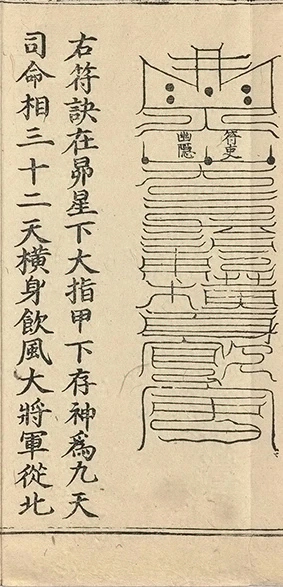 符吏
幽隱
右符訣在昴星下大指甲下存神爲九天
司命相三十二天橫身飲風大將軍從北